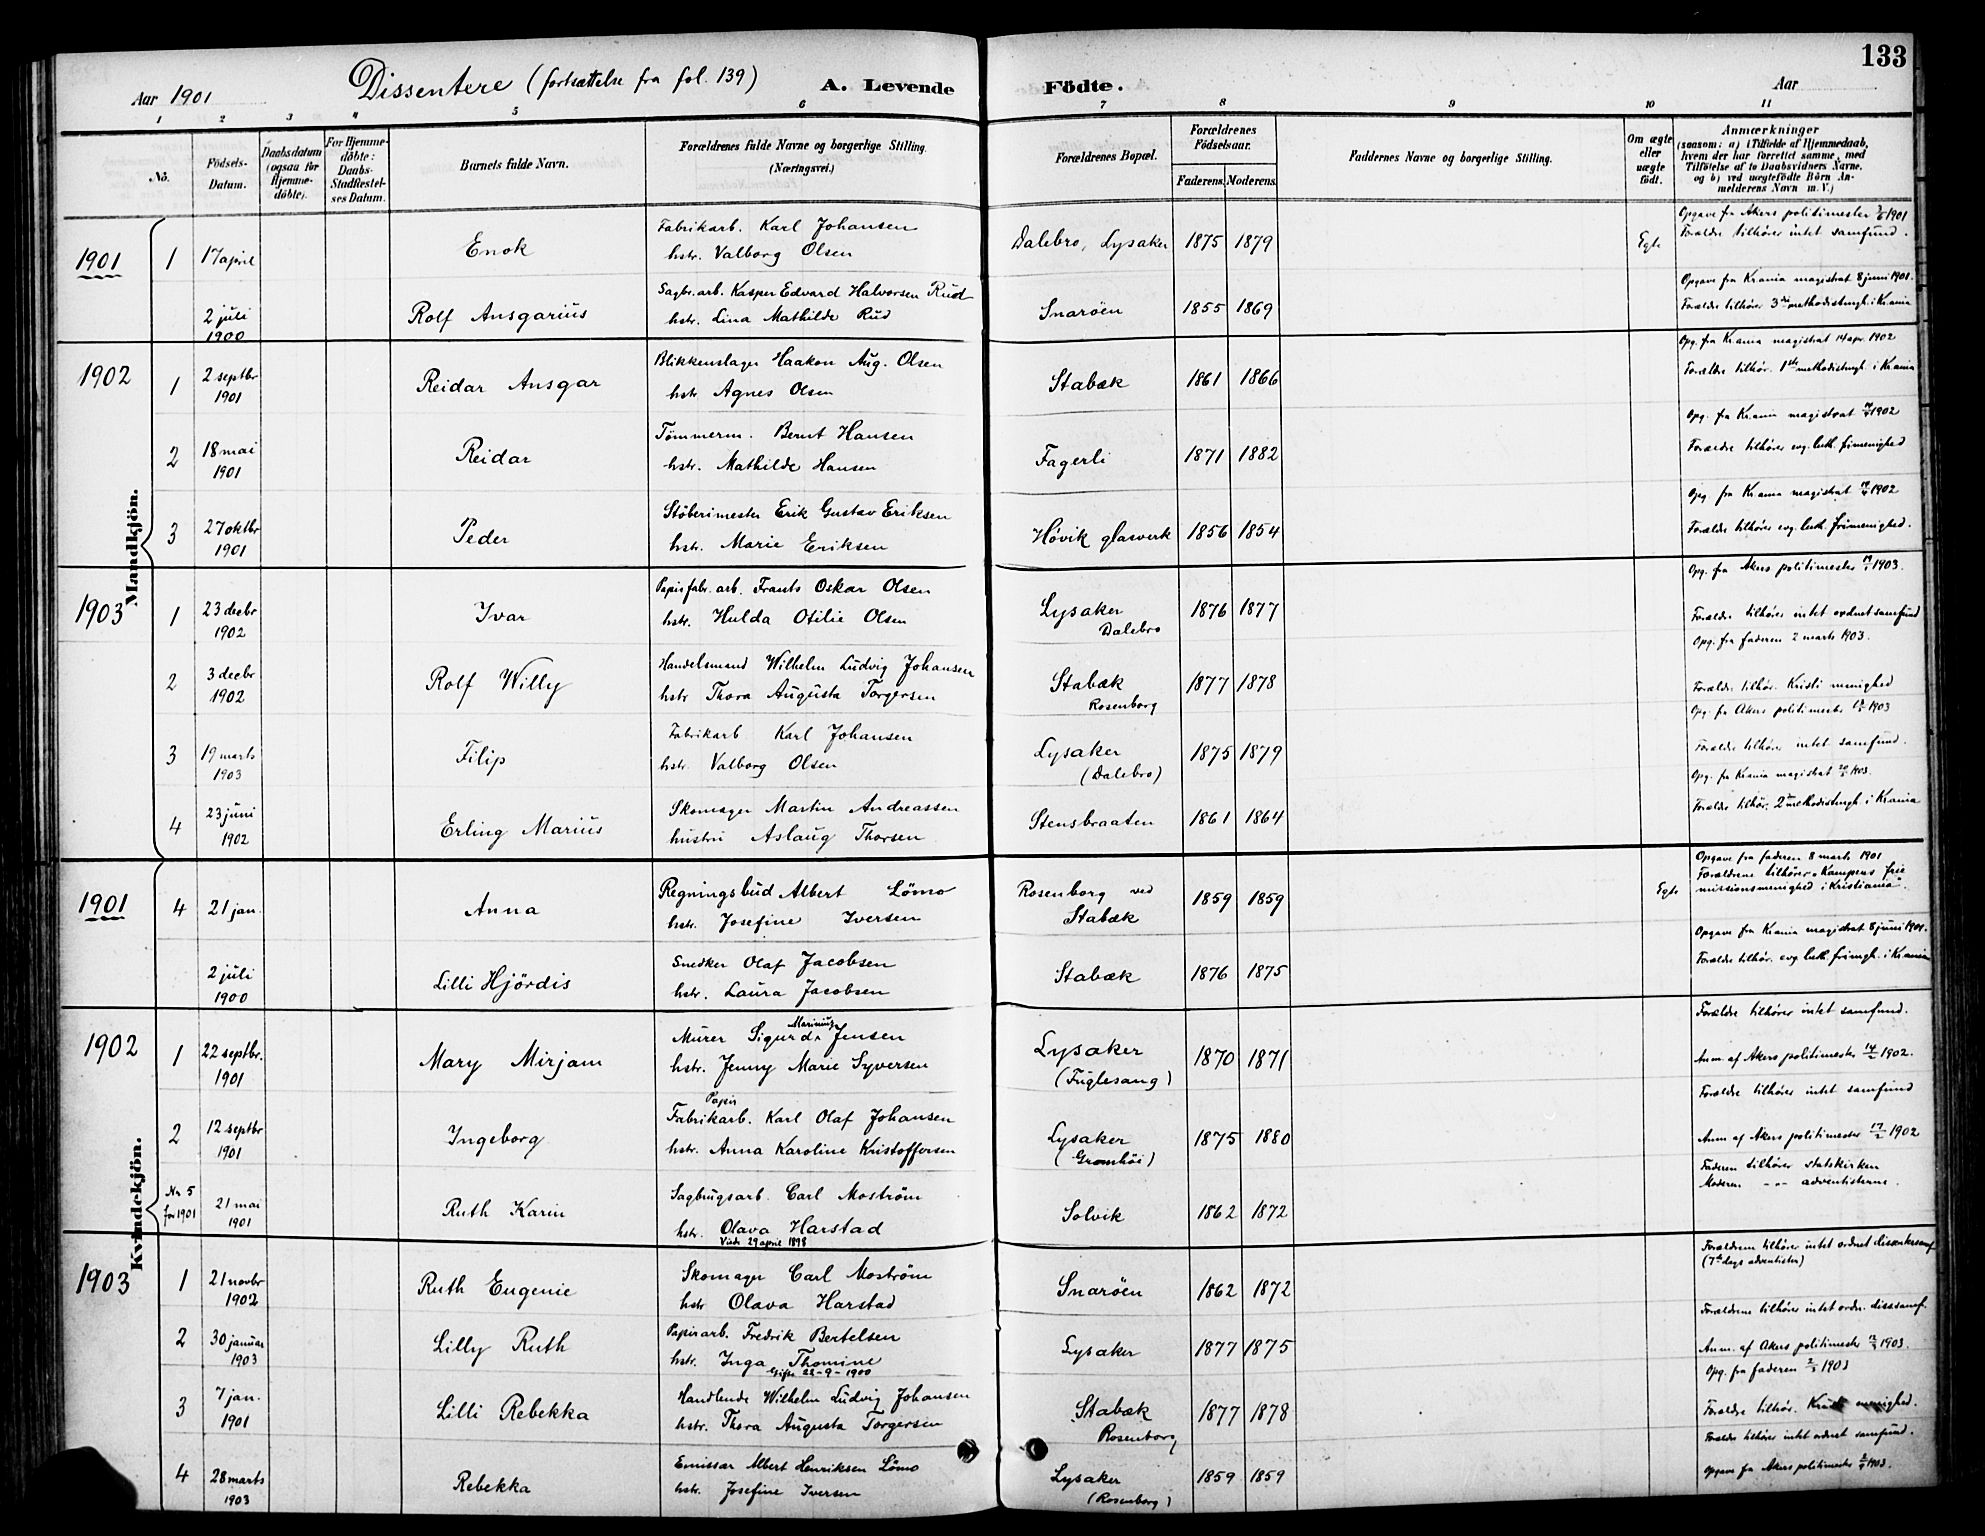 133
Dissentere (fortsættelse fra fol. 139)
A. Levende Födte.
Aar 1901
Aar
1 2 3 4 5 6 7 8 9 10 11
No.
Födsels-Datum.
Daabsdatum (ogsaa for Hjemme-döbte).
For Hjemme-döbte: Daabs-Stadfæstel-ses Datum.
Barnets fulde Navn.
Forældrenes fulde Navne og borgerlige Stilling. (Næringsvei.)
Forældrenes Bopæl.
Forældrenes Födselsaar.
Faderens. Moderens.
Faddernes Navne og borgerlige Stilling.
Om ægte eller uægte födt.
Anmærkninger
(saasom: a) i Tilfælde af Hjemmedaab, hvem der har forrettet samme, med Tilföielse af to Daabsvidners Navne. og b) ved uægtefödte Börn An-melderens Navn m. V.)
Mandkjön.
1901 1 17 april Enok Fabrikarb. Karl Johansen
hstr. Valborg Olsen
Dalebro, Lysaker 1875 1879 Egte
Opgave fra Akers politimester 1901
Forældre tilhører intet samfund.
2 juli 1900 Rolf Ansgarius Sagbr.arb. Kasper Edvard Halvorsen Rud
hstr. Lina Mathilde Rud
Snarøen 1855 1869
Opgave fra Krania magistrat 8 juni 1901.
Forældre tilhører 3die methodistmgh. i Krania
1902 1 2 septbr 1901 Reidar Ansgar Blikkenslager Haakon Aug. Olsen
hstr Agnes Olsen
Stabæk 1861 1866
Opg. fra Krania magistrat 14 apr. 1902
Forældre tilhør. 1ste methodistmgh. i Krania
2 18 mai 1901 Reidar Tømmerm. Bernt Hansen
hstr. Mathilde Hansen
Fagerli 1871 1882
Opg. fra Krania magistrat 1902
Forældre tilhører evg. luth. frimenighed
3 27 oktbr 1901 Peder Støberimester Erik Gustav Eriksen
hstr. Marie Eriksen
Høvik glasverk 1856 1854
Opg. fra Krania magistrat 1902
Forældre tilhører evg. luth. frimenighed.
1903 1 23 decbr 1902 Ivar Papirfabr. arb. Frants Oskar Olsen
hstr. Hulda Otilie Olsen
Lysaker Dalebro 1876 1877
Opg. fra Akers politimester 1903.
Forældre tilhører intet ordnet samfund
2 3 decbr 1902 Rolf Willy Handelsmand Wilhelm Ludvig Johansen
hstr Thora Augusta Torgersen
Stabæk Rosenborg 1877 1878
Opg. fra faderen 2 marts 1903.
Forældre tilhør. Kristi menighed
3 19 marts 1903 Filip Fabrikarb Karl Johansen
hstr. Valborg Olsen
Lysaker (Dalebro) 1875 1879
Opg. fra Akers politimester 1903
Forældre tilhører intet samfund.
4 23 juni 1902 Erling Marius Skomager Martin Andreassen
hustru Aslaug Thorsen
Stensbraaten 1861 1864
Opg. fra Krania magistrat 1903.
Forældre tilhør. 2 methodistmgh. i Krania
Kvindekjön.
1901 4 21 jan. Anna Regningsbud Albert Lömo
hstr. Josefine Iversen
Rosenborg ved Stabæk 1859 1859 Egte
Opgave fra faderen 8 marts 1901
Forældrene tilhører "Kampens frie
missionsmenighed i Kristiania".
2 juli 1900 Lilli Hjördis Snedker Olaf Jacobsen
hstr. Laura Jacobsen
Stabæk 1876 1875
Opgave fra Krania magistrat 8 juni 1901.
Forældre tilhør. evg. luth. frimgh. i Krania
1902 1 22 septbr. 1901 Mary Mirjam Murer Sigurd Marinius Jensen
hstr. Jenny Marie Syversen
Lysaker (Fuglesang) 1870 1871
Forældre tilhører intet samfund.
Anm. af Akers politimester 14/2 1902.
2 12 septbr 1901 Ingeborg Papir Fabrikarb. Karl Olaf Johansen
hstr. Anna Karoline Kristoffersen
Lysaker (Gramhöi) 1875 1880
Forældre tilhører intet samfund
Anm af Akers politimester 17/2 1902
Nr. 5 for 1901 21 mai 1901 Ruth Karin Sagbrugsarb. Carl Moström
hstr. Olava Harstad
Viede 29 april 1898
Solvik 1862 1872
Faderen tilhører statskirken
Moderen -"- adventisterne.
1903 1 21 novbr 1902 Ruth Eugenie Skomager Carl Moström
hstr Olava Harstad
Snarøen 1862 1872
Forældrene tilhører intet ordnet dissentersamf
(7de dags adventister)
2 30 januar 1903 Lilly Ruth Papirarb. Fredrik Bertelsen
hstr. Inga Thomine
Gifte 22-9-1900
Lysaker 1877 1875
Forældrene tilhører intet ordn. disssamf.
Anm. af Akers politimester 1903.
3 7 jan. 1901 Lilli Rebekka Handlende Wilhelm Ludvig Johansen
hstr. Thora Augusta Torgersen
Stabæk Rosenborg 1877 1878
Opg. fra faderen 1903
Forældre tilhør. Kristi menighed.
4 28 marts 1903 Rebekka Emissær Albert Henriksen Lömo
hstr. Josefine Iversen
Lysaker (Rosenborg) 1859 1859
Forældre tilhører intet ordnet samfund.
Opgave fra Akers politimester 1903.